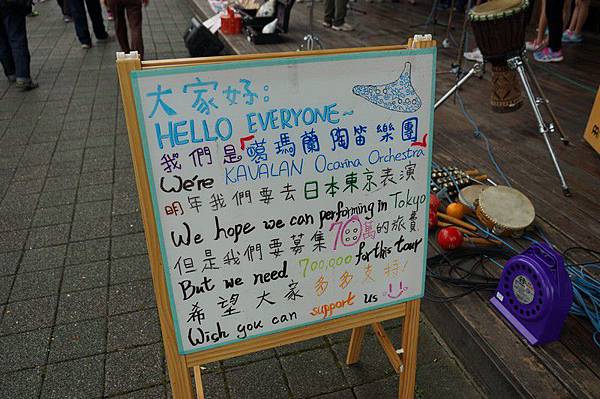 大家好:
HELLO EVERYONE~
我們是「噶瑪蘭陶笛樂團」
We're KAVALAN Ocarina Orchestra
明年我們要去日本東京表演
We hope we can performing in Tokyo
但是我們要募集70萬的旅費
But we need 700,000 for this tour
希望大家多多支持!
Wish you can support us